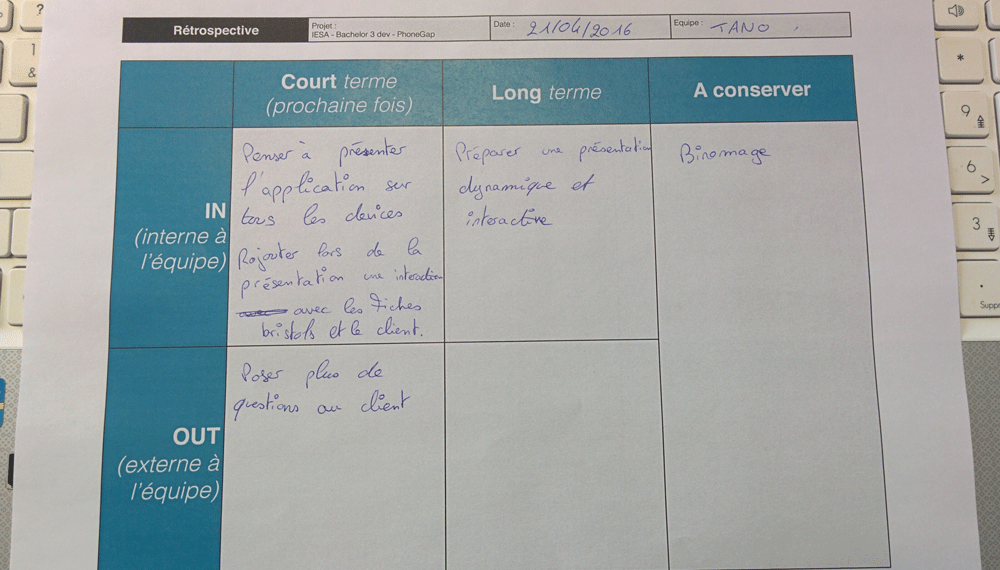 Rétrospective
Projet :
IESA - Bachelor 3 dev - PhoneGap
Date : 21/04/2016
Equipe : TANO
Court terme
(prochaine fois)
Long terme
A conserver
IN
(interne à
l'équipe)
Penser à présenter
l'application sur
tous les devices
Rajouter lors de la
présentation une interaction
avec les Fiches
bristols et le client.
Préparer une présentation
dynamique et
interactive
Binomage
OUT
(externe à
l'équipe)
Poser plus de
questions au client
?
1
&
*
9
6
>
3
.
Suppr